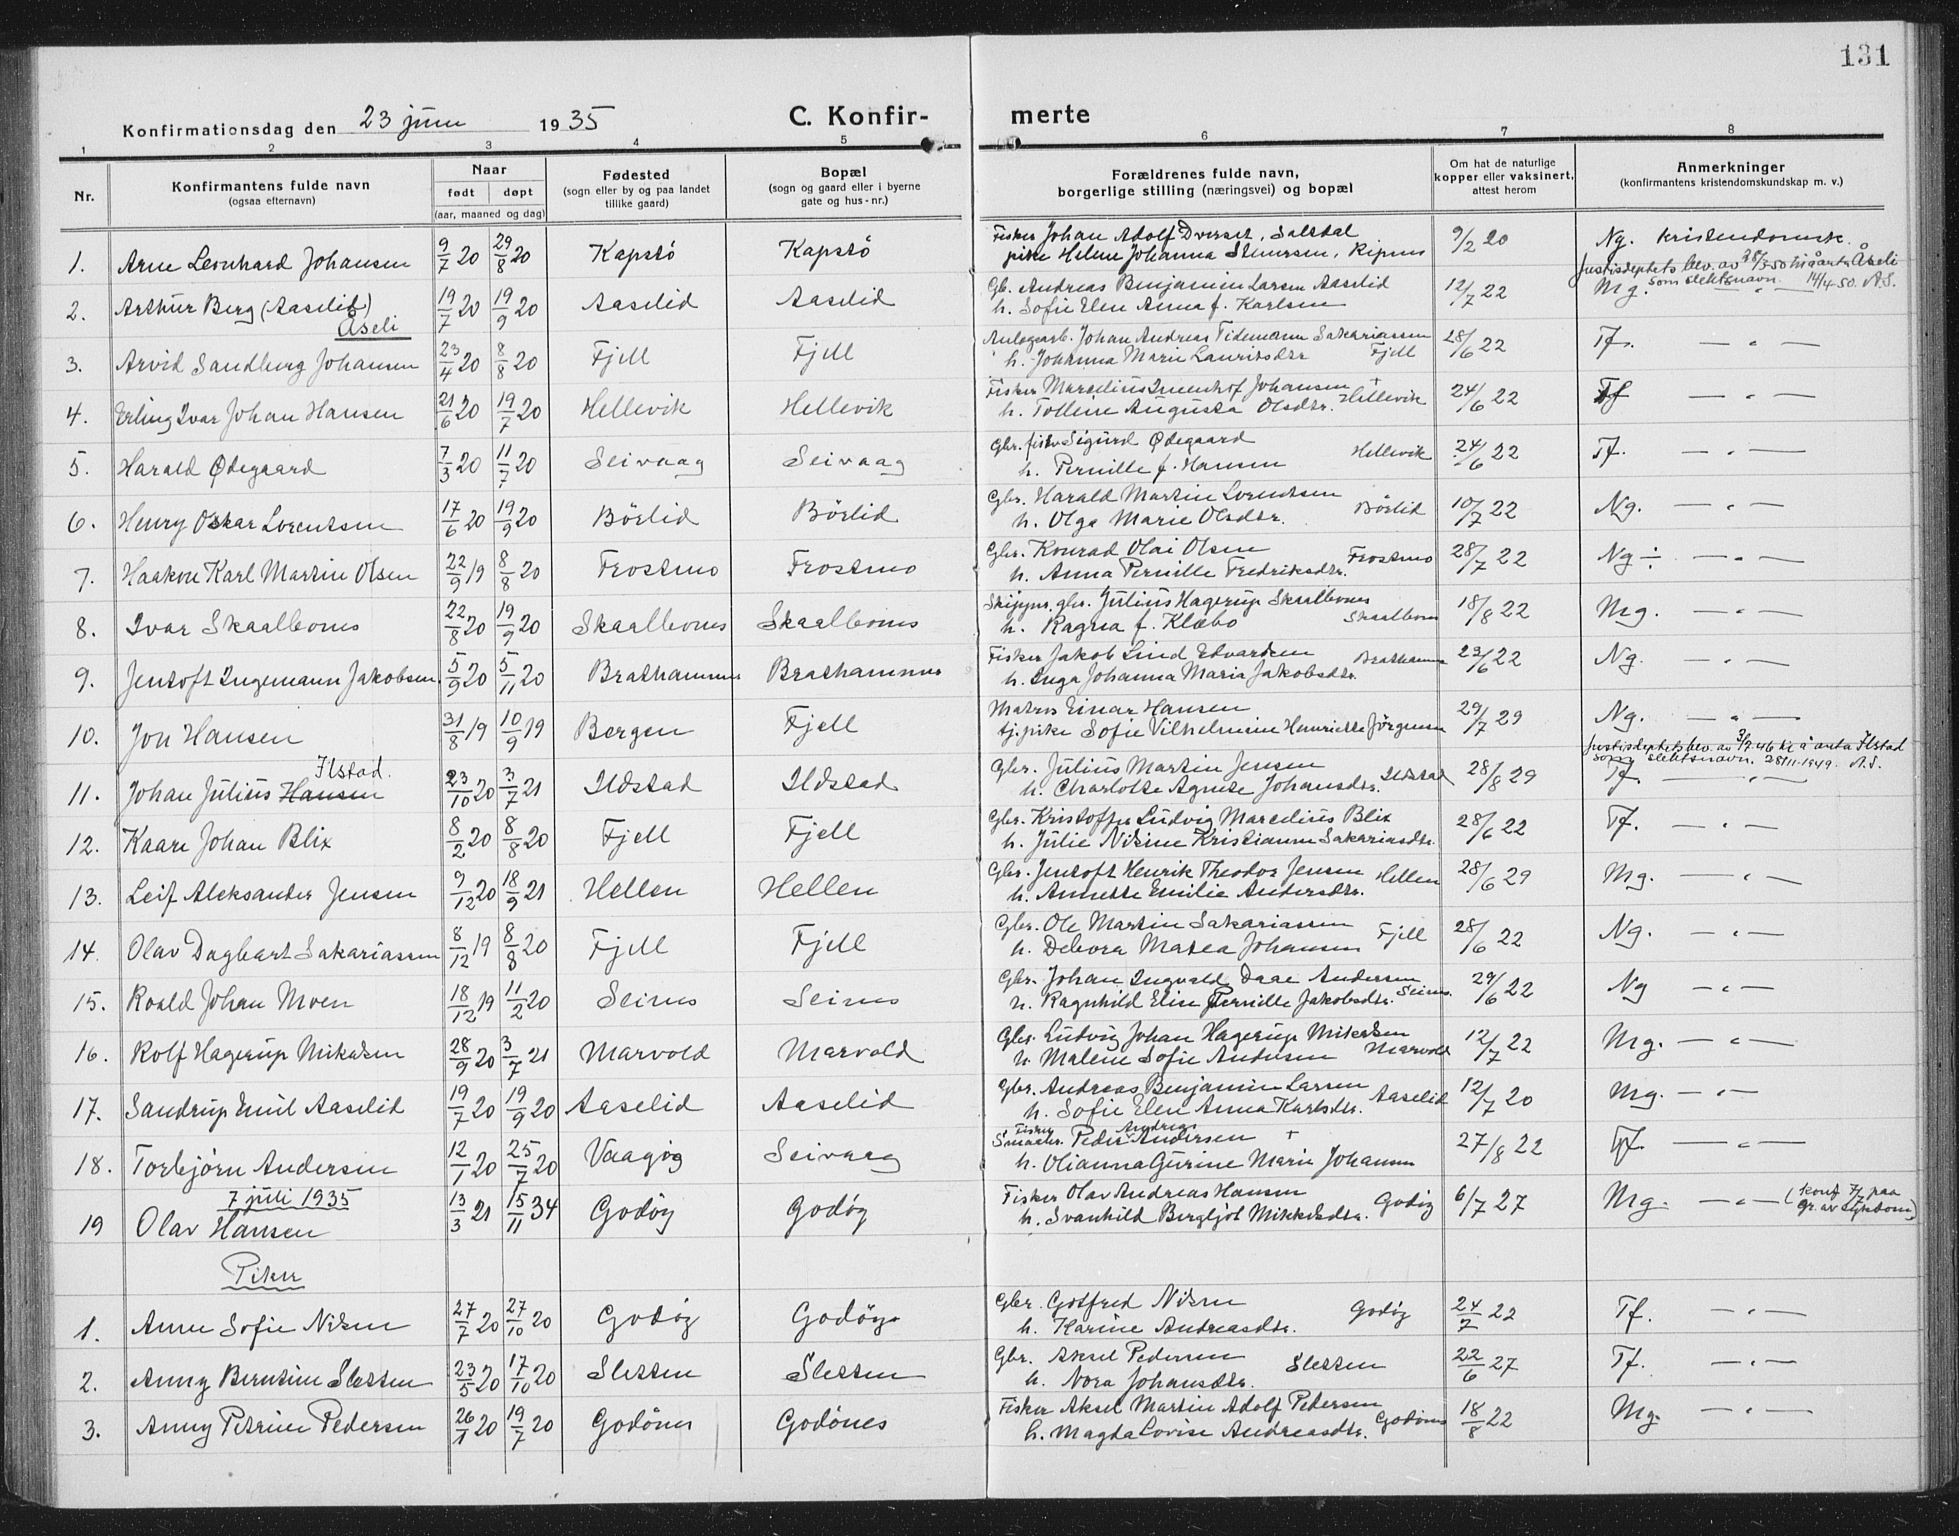 131
Konfirmationsdag den 23 juni 1935 C. Konfir- merte
1 2 3 4 5 6 7 8
Nr. Konfirmantens fulde navn (ogsaa efternavn) Naar født døpt (aar, maaned og dag) Fødested (sogn eller by og paa landet tillike gaard) Bopæl (sogn og gaard eller i byerne gate og hus-nr.) Forældrenes fulde navn, borgerlige stilling (næringsvei) og bopæl Om hat de naturlige kopper eller vaksinert, attest herom Anmerkninger (konfirmantens kristendomskundskap m. v.)
1. Arne Leonhard Johansen 9/7 20 29/8 20 Kapstö Kapstö Fisker Johan Adolf Dverset, Saltdal 9/2 20 Ng. Kristendomsk.
pike Helene Johanna Steinrsen, Ripnes
Justisdeptets bev. av 28/3-50 til å anta Åseli
som slektsnavn. 14/4-50. A.S.
2. Arthur Berg (Aaselid) 19/7 20 19/9 20 Aaselid Aaselid Gb. Andreas Benjamin Larsen Aaselid 12/7 22 Mg. — " —
Åseli h. Sofie Elen Anna f. Karlsen
3. Arvid Sandberg Johansen 23/4 20 8/8 20 Fjell Fjell Anlegsarb. Johan Andreas Tidemann Sakariassen 28/6 22 Tf. — " —
h. Johanna Marie Lauritsdtr Fjell
4. Erling Ivar Johan Hansen 21/6 20 19/7 20 Hellevik Hellevik Fisker Marselius Johansen + 24/6 22 Tf — " —
h. Tolline Augusta Olsdtr. Hellevik
5. Harald Ødegaard 7/3 20 11/7 20 Seivaag Seivaag Gbr. fisker Sigurd Ødegaard Hellevik 24/6 22 Tf. — " —
h. Pernille f. Hansen
6. Henry Oskar Lorentsen 17/6 20 19/9 20 Börlid Börlid Gbr. Harald Martin Lorentsen Börlid 10/7 22 Ng. — " —
h. Olga Marie Olsdtr.
7. Haakon Karl Martin Olsen 22/9 19 8/8 20 Frostmo Frostmo Gbr. Konrad Olai Olsen Frostmo 28/7 22 Ng ÷ — " —
h. Anna Pernille Fredriksdtr.
8. Ivar Skaalbones 22/8 20 19/9 20 Skaalbones Skaalbones Skipper, gbr. Julius Hagerup Skaalbones 18/8 22 Mg. — " —
h. Ragna f. Klæbo Skaalbones
9. Jentoft Ingemann Jakobsen 5/9 20 5/11 20 Brathammer Brathammer Fisker Jakob Lind Edvardsen Brathamm 23/6 22 Ng. — " —
h. Inga Johanna Maria Jakobsdtr.
10. Jon Hansen 31/8 19 10/9 19 Bergen Fjell Matros Einar Hansen 29/7 29 Ng. — " —
tj.pike Sofie Vilhelmine Henriette Jørgensen
Justisdeptets bev. av 3/7-46 til å anta Ilstad
som slektsnavn. 28/11-1949. A.S.
Ilstad.
11. Johan Julius Hansen 23/10 20 3/7 21 Ildstad Ildstad Gbr. Julius Martin Jensen Ildstad 28/8 29 Tf. — " —
h. Charlotte Agnete Johansdtr.
12. Kaare Johan Blix 8/2 20 8/8 20 Fjell Fjell Gbr. Kristoffer Ludvig Marselius Blix 28/6 22 Tf. — " —
h. Julie Nikine Kristianne Sakariasdtr.
13. Leif Aleksander Jensen 9/12 20 18/9 21 Hellen Hellen Gbr. Jentoft Henrik Theodor Jensen Hellen 28/6 29 Mg. — " —
h. Annette Emilie Andersdtr.
14. Olav Dagbart Sakariassen 8/12 19 8/8 20 Fjell Fjell Gbr. Ole Martin Sakariassen Fjell 28/6 22 Ng. — " —
h. Debora Matea Johansen
15. Roald Johan Moen 18/12 19 11/2 20 Seines Seines Gbr. Johan Ingvald Daae Andersen 29/6 22 Ng — " —
h. Ragnhild Elise Pernille Jakobsdtr. Seines.
16. Rolf Hagerup Mikalsen 28/9 20 3/7 21 Marvold Marvold Gbr. Ludvig Johan Hagerup Mikalsen 12/7 22 Mg. — " —
h. Malene Sofie Andersen Marvold
17. Sandrup Emil Aaselid 19/7 20 19/9 20 Aaselid Aaselid Gbr. Andreas Benjamin Larsen Aaselid 12/7 20 Mg. — " —
h. Sofie Elen Anna Karlsdtr.
18. Torbjørn Andersen 12/1 20 25/7 20 Vaagøg Seivaag Fisker Peder Andreas Andersen + 27/8 22 Tf. — " —
h. Olianna Gurine Marie Johansen
7 juli 1935
19 Olav Hansen 13/3 21 15/11 34 Godöy Godöy Fisker Olav Andreas Hansen Godöy 6/7 27 Mg. — " — (konf 7/7 paa gr. av sykdom)
h. Svanhild Bergljot Mikkelsdtr.
Piker
1. Anne Sofie Nilsen 27/7 20 27/10 20 Godöy Godöy Gbr. Gotfred Nilsen Godöy 24/7 22 Tf. — " —
h. Karine Andreasdtr.
2. Anny Berntine Sletten 23/5 20 17/10 20 Sletten Sletten Gbr. Aksel Pedersen Sletten 22/6 27 Tf. — " —
h. Nora Johansdtr.
3. Anny Petrine Pedersen 26/1 20 19/7 20 Godönes Godönes Fisker Aksel Martin Adolf Pedersen Godönes 18/8 22 Mg. — " —
h. Magda Lovise Andreasdtr.